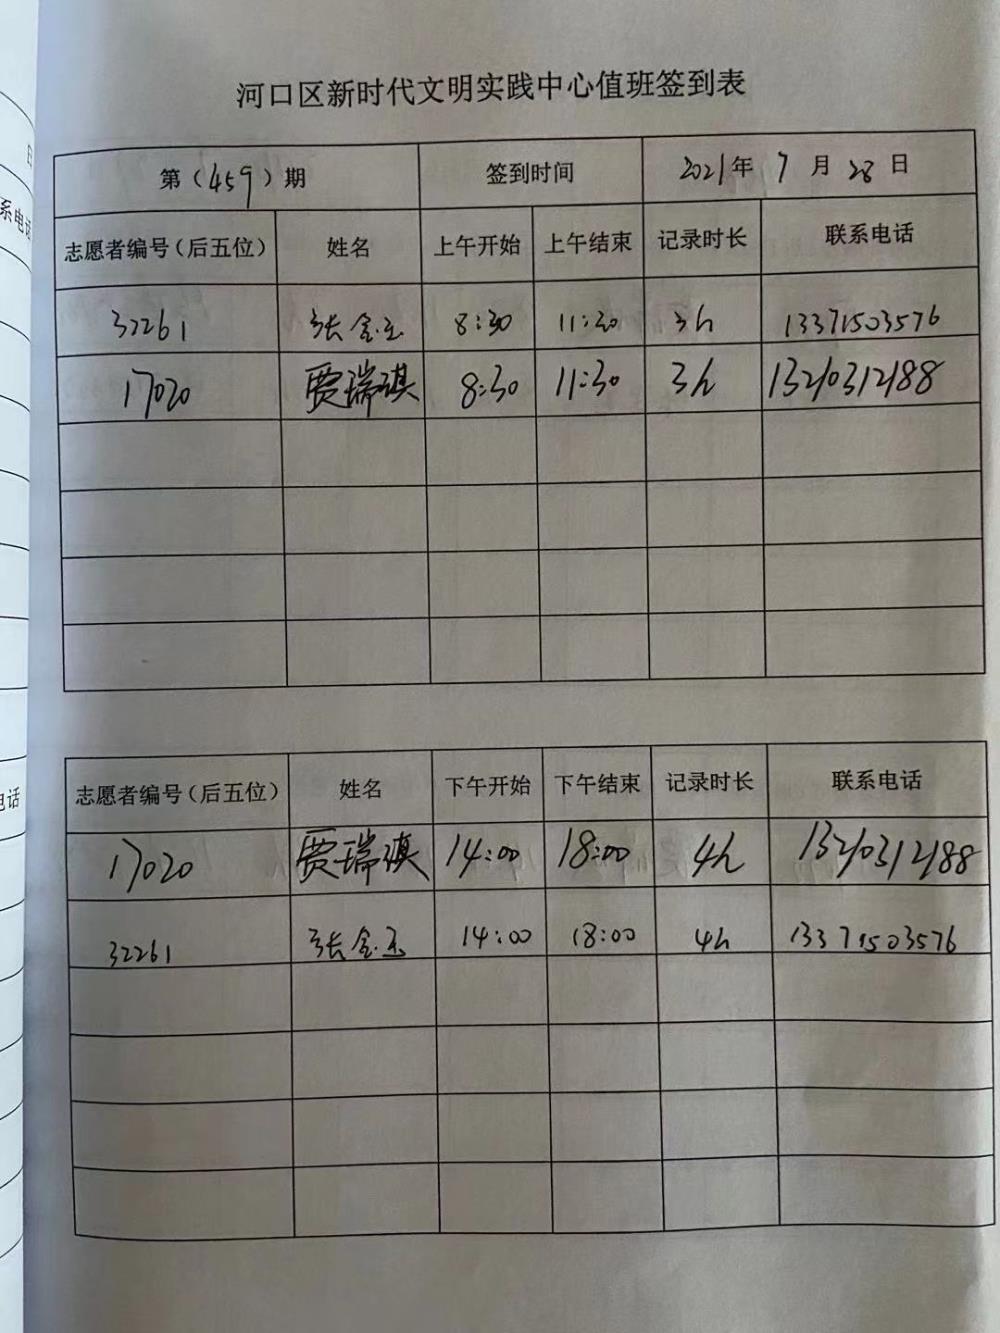 河口区新时代文明实践中心值班签到表
第（459）期 签到时间 2021年 7 月 28 日
志愿者编号（后五位） 姓名 上午开始 上午结束 记录时长 联系电话
32261 张金玉 8:30 11:30 3h 13371503576
17020 贾瑞祺 8:30 11:30 3h 13210312188
志愿者编号（后五位） 姓名 下午开始 下午结束 记录时长 联系电话
17020 贾瑞祺 14:00 18:00 4h 13210312188
32261 张金玉 14:00 18:00 4h 13371503576
系电话
电话